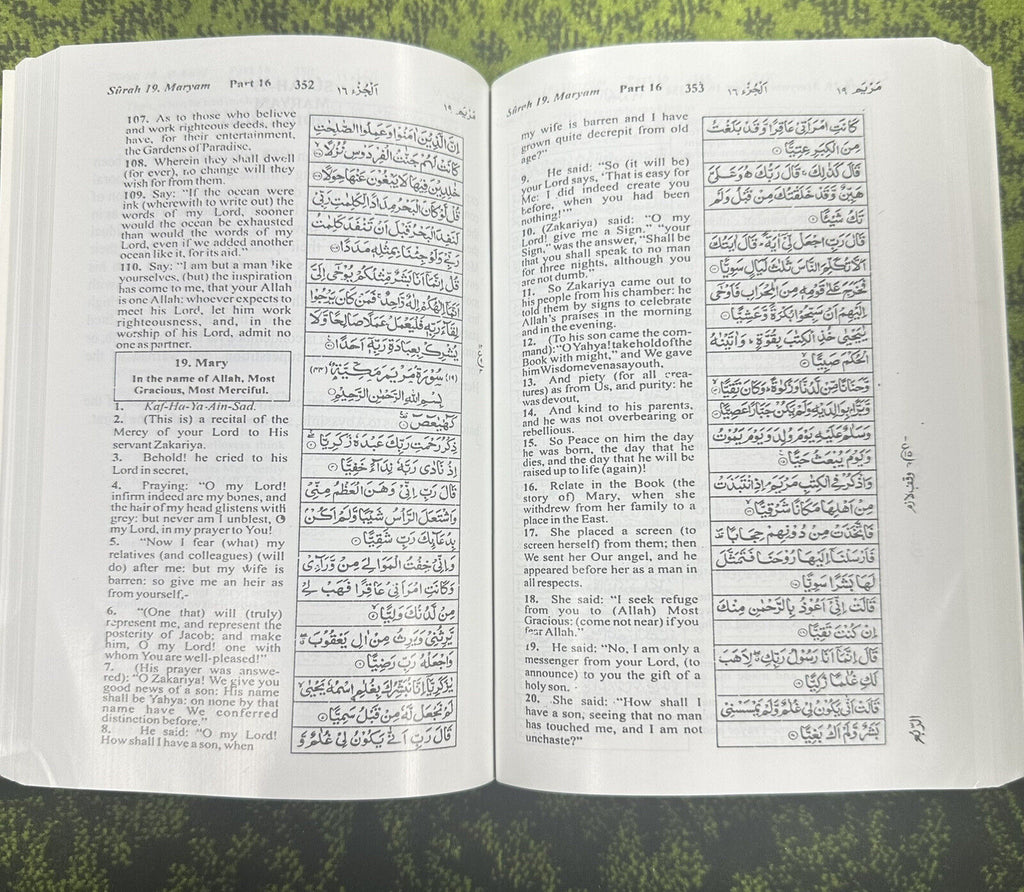 Sûrah 19. Maryam Part 16 352 اَلْجُزْء ١٦ مَرْيَم ١٩
107. As to those who believe
and work righteous deeds, they
have, for their entertainment,
the Gardens of Paradise.
108. Wherein they shall dwell
(for ever), no change will they
wish for from them.
109. Say: "If the ocean were
ink (wherewith to write out) the
words of my Lord, sooner
would the ocean be exhausted
than would the words of my
Lord, even if we added another
ocean like it, for its aid."
110. Say: "I am but a man like
yourselves, (but) the inspiration
has come to me, that your Allah
is one Allah: whoever expects to
meet his Lord, let him work
righteousness, and, in the
worship of his Lord, admit no
one as partner.
19. Mary
In the name of Allah, Most
Gracious, Most Merciful.
1. Kaf-Ha-Ya-Ain-Sad.
2. (This is) a recital of the
Mercy of your Lord to His
servant Zakariya.
3. Behold! he cried to his
Lord in secret,
4. Praying: "O my Lord!
infirm indeed are my bones, and
the hair of my head glistens with
grey: but never am I unblest, O
my Lord, in my prayer to You!
5. "Now I fear (what) my
relatives (and colleagues) (will
do) after me: but my wife is
barren: so give me an heir as
from yourself,-
6. "(One that) will (truly)
represent me, and represent the
posterity of Jacob; and make
him, O my Lord! one with
whom You are well-pleased!"
7. (His prayer was answe-
red): "O Zakariya! We give you
good news of a son: His name
shall be Yahya: on none by that
name have We conferred
distinction before."
8. He said: "O my Lord!
How shall I have a son, when
اِنَّ الَّذِيْنَ اٰمَنُوْا وَعَمِلُوا الصّٰلِحٰتِ
كَانَتْ لَهُمْ جَنّٰتُ الْفِرْدَوْسِ نُزُلًا
خٰلِدِيْنَ فِيْهَا لَا يَبْغُوْنَ عَنْهَا حِوَلًا
قُلْ لَّوْ كَانَ الْبَحْرُ مِدَادًا لِّكَلِمٰتِ رَبِّيْ
لَنَفِدَ الْبَحْرُ قَبْلَ اَنْ تَنْفَدَ كَلِمٰتُ
رَبِّيْ وَلَوْ جِئْنَا بِمِثْلِهٖ مَدَدًا
قُلْ اِنَّمَاۤ اَنَا بَشَرٌ مِّثْلُكُمْ يُوْحٰۤى اِلَيَّ
اَنَّمَاۤ اِلٰهُكُمْ اِلٰهٌ وَّاحِدٌ فَمَنْ كَانَ يَرْجُوْا
لِقَآءَ رَبِّهٖ فَلْيَعْمَلْ عَمَلًا صَالِحًا وَّلَا
يُشْرِكْ بِعِبَادَةِ رَبِّهٖۤ اَحَدًا
(١٩) سُوْرَةُ مَرْيَمَ مَكِّيَّةٌ (٤٤)
بِسْمِ اللّٰهِ الرَّحْمٰنِ الرَّحِيْمِ
كٓهٰيٰعٓصٓ
ذِكْرُ رَحْمَتِ رَبِّكَ عَبْدَهٗ زَكَرِيَّا
اِذْ نَادٰى رَبَّهٗ نِدَآءً خَفِيًّا
قَالَ رَبِّ اِنِّيْ وَهَنَ الْعَظْمُ مِنِّيْ
وَاشْتَعَلَ الرَّاْسُ شَيْبًا وَّلَمْ اَكُنْ
بِدُعَآئِكَ رَبِّ شَقِيًّا
وَاِنِّيْ خِفْتُ الْمَوَالِيَ مِنْ وَّرَآءِيْ
وَكَانَتِ امْرَاَتِيْ عَاقِرًا فَهَبْ لِيْ
مِنْ لَّدُنْكَ وَلِيًّا
يَّرِثُنِيْ وَيَرِثُ مِنْ اٰلِ يَعْقُوْبَ
وَاجْعَلْهُ رَبِّ رَضِيًّا
يٰزَكَرِيَّاۤ اِنَّا نُبَشِّرُكَ بِغُلٰمِ ۨاسْمُهٗ يَحْيٰى
لَمْ نَجْعَلْ لَّهٗ مِنْ قَبْلُ سَمِيًّا
قَالَ رَبِّ اَنّٰى يَكُوْنُ لِيْ غُلٰمٌ وَّ
Sûrah 19. Maryam Part 16 353 اَلْجُزْء ١٦ مَرْيَم ١٩
my wife is barren and I have
grown quite decrepit from old
age?"
9. He said: "So (it will be)
your Lord says, 'That is easy for
Me: I did indeed create you
before, when you had been
nothing!'"
10. (Zakariya) said: "O my
Lord! give me a Sign." "your
Sign," was the answer, "Shall be
that you shall speak to no man
for three nights, although you
are not dumb."
11. So Zakariya came out to
his people from his chamber: he
told them by signs to celebrate
Allah's praises in the morning
and in the evening.
12. (To his son came the com-
mand): "O Yahya! take hold of the
Book with might," and We gave
him Wisdom even as a youth,
13. And piety (for all crea-
tures) as from Us, and purity: he
was devout,
14. And kind to his parents,
and he was not overbearing or
rebellious.
15. So Peace on him the day
he was born, the day that he
dies, and the day that he will be
raised up to life (again)!
16. Relate in the Book (the
story of) Mary, when she
withdrew from her family to a
place in the East.
17. She placed a screen (to
screen herself) from them; then
We sent her Our angel, and he
appeared before her as a man in
all respects.
18. She said: "I seek refuge
from you to (Allah) Most
Gracious: (come not near) if you
fear Allah."
19. He said: "No, I am only a
messenger from your Lord, (to
announce) to you the gift of a
holy son.
20. She said: "How shall I
have a son, seeing that no man
has touched me, and I am not
unchaste?"
كَانَتِ امْرَاَتِيْ عَاقِرًا وَّقَدْ بَلَغْتُ
مِنَ الْكِبَرِ عِتِيًّا
قَالَ كَذٰلِكَ قَالَ رَبُّكَ هُوَ عَلَيَّ
هَيِّنٌ وَّقَدْ خَلَقْتُكَ مِنْ قَبْلُ وَلَمْ
تَكُ شَيْـًٔا
قَالَ رَبِّ اجْعَلْ لِّيْۤ اٰيَةً قَالَ اٰيَتُكَ
اَلَّا تُكَلِّمَ النَّاسَ ثَلٰثَ لَيَالٍ سَوِيًّا
فَخَرَجَ عَلٰى قَوْمِهٖ مِنَ الْمِحْرَابِ فَاَوْحٰۤى
اِلَيْهِمْ اَنْ سَبِّحُوْا بُكْرَةً وَّعَشِيًّا
يٰيَحْيٰى خُذِ الْكِتٰبَ بِقُوَّةٍ وَاٰتَيْنٰهُ
الْحُكْمَ صَبِيًّا
وَّحَنَانًا مِّنْ لَّدُنَّا وَزَكٰوةً وَكَانَ تَقِيًّا
وَّبَرًّا بِوَالِدَيْهِ وَلَمْ يَكُنْ جَبَّارًا عَصِيًّا
وَسَلٰمٌ عَلَيْهِ يَوْمَ وُلِدَ وَيَوْمَ يَمُوْتُ
وَيَوْمَ يُبْعَثُ حَيًّا
وَاذْكُرْ فِي الْكِتٰبِ مَرْيَمَ اِذِ انْتَبَذَتْ
مِنْ اَهْلِهَا مَكَانًا شَرْقِيًّا
فَاتَّخَذَتْ مِنْ دُوْنِهِمْ حِجَابًا
فَاَرْسَلْنَاۤ اِلَيْهَا رُوْحَنَا فَتَمَثَّلَ
لَهَا بَشَرًا سَوِيًّا
قَالَتْ اِنِّيْۤ اَعُوْذُ بِالرَّحْمٰنِ مِنْكَ
اِنْ كُنْتَ تَقِيًّا
قَالَ اِنَّمَاۤ اَنَا رَسُوْلُ رَبِّكِ لِاَهَبَ
لَكِ غُلٰمًا زَكِيًّا
قَالَتْ اَنّٰى يَكُوْنُ لِيْ غُلٰمٌ وَّلَمْ يَمْسَسْنِيْ
بَشَرٌ وَّلَمْ اَكُ بَغِيًّا
وقف لازم
الربع